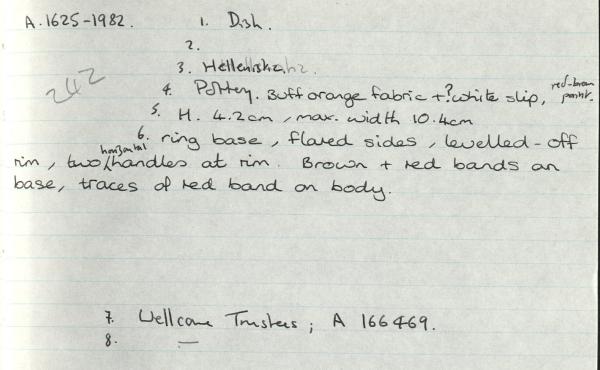 A.1625-1982. 1. Dish.
2.
3. Hellenistic
242
4. Pottery. Buff orange fabric + ? white slip, red-brown paint.
5. H. 4.2cm, max. width 10.4cm
6. ring base, flared sides, levelled-off
rim, two horizontal handles at rim. Brown + red bands on
base, traces of red band on body.
7. Wellcome Trustees; A 166469.
8. —